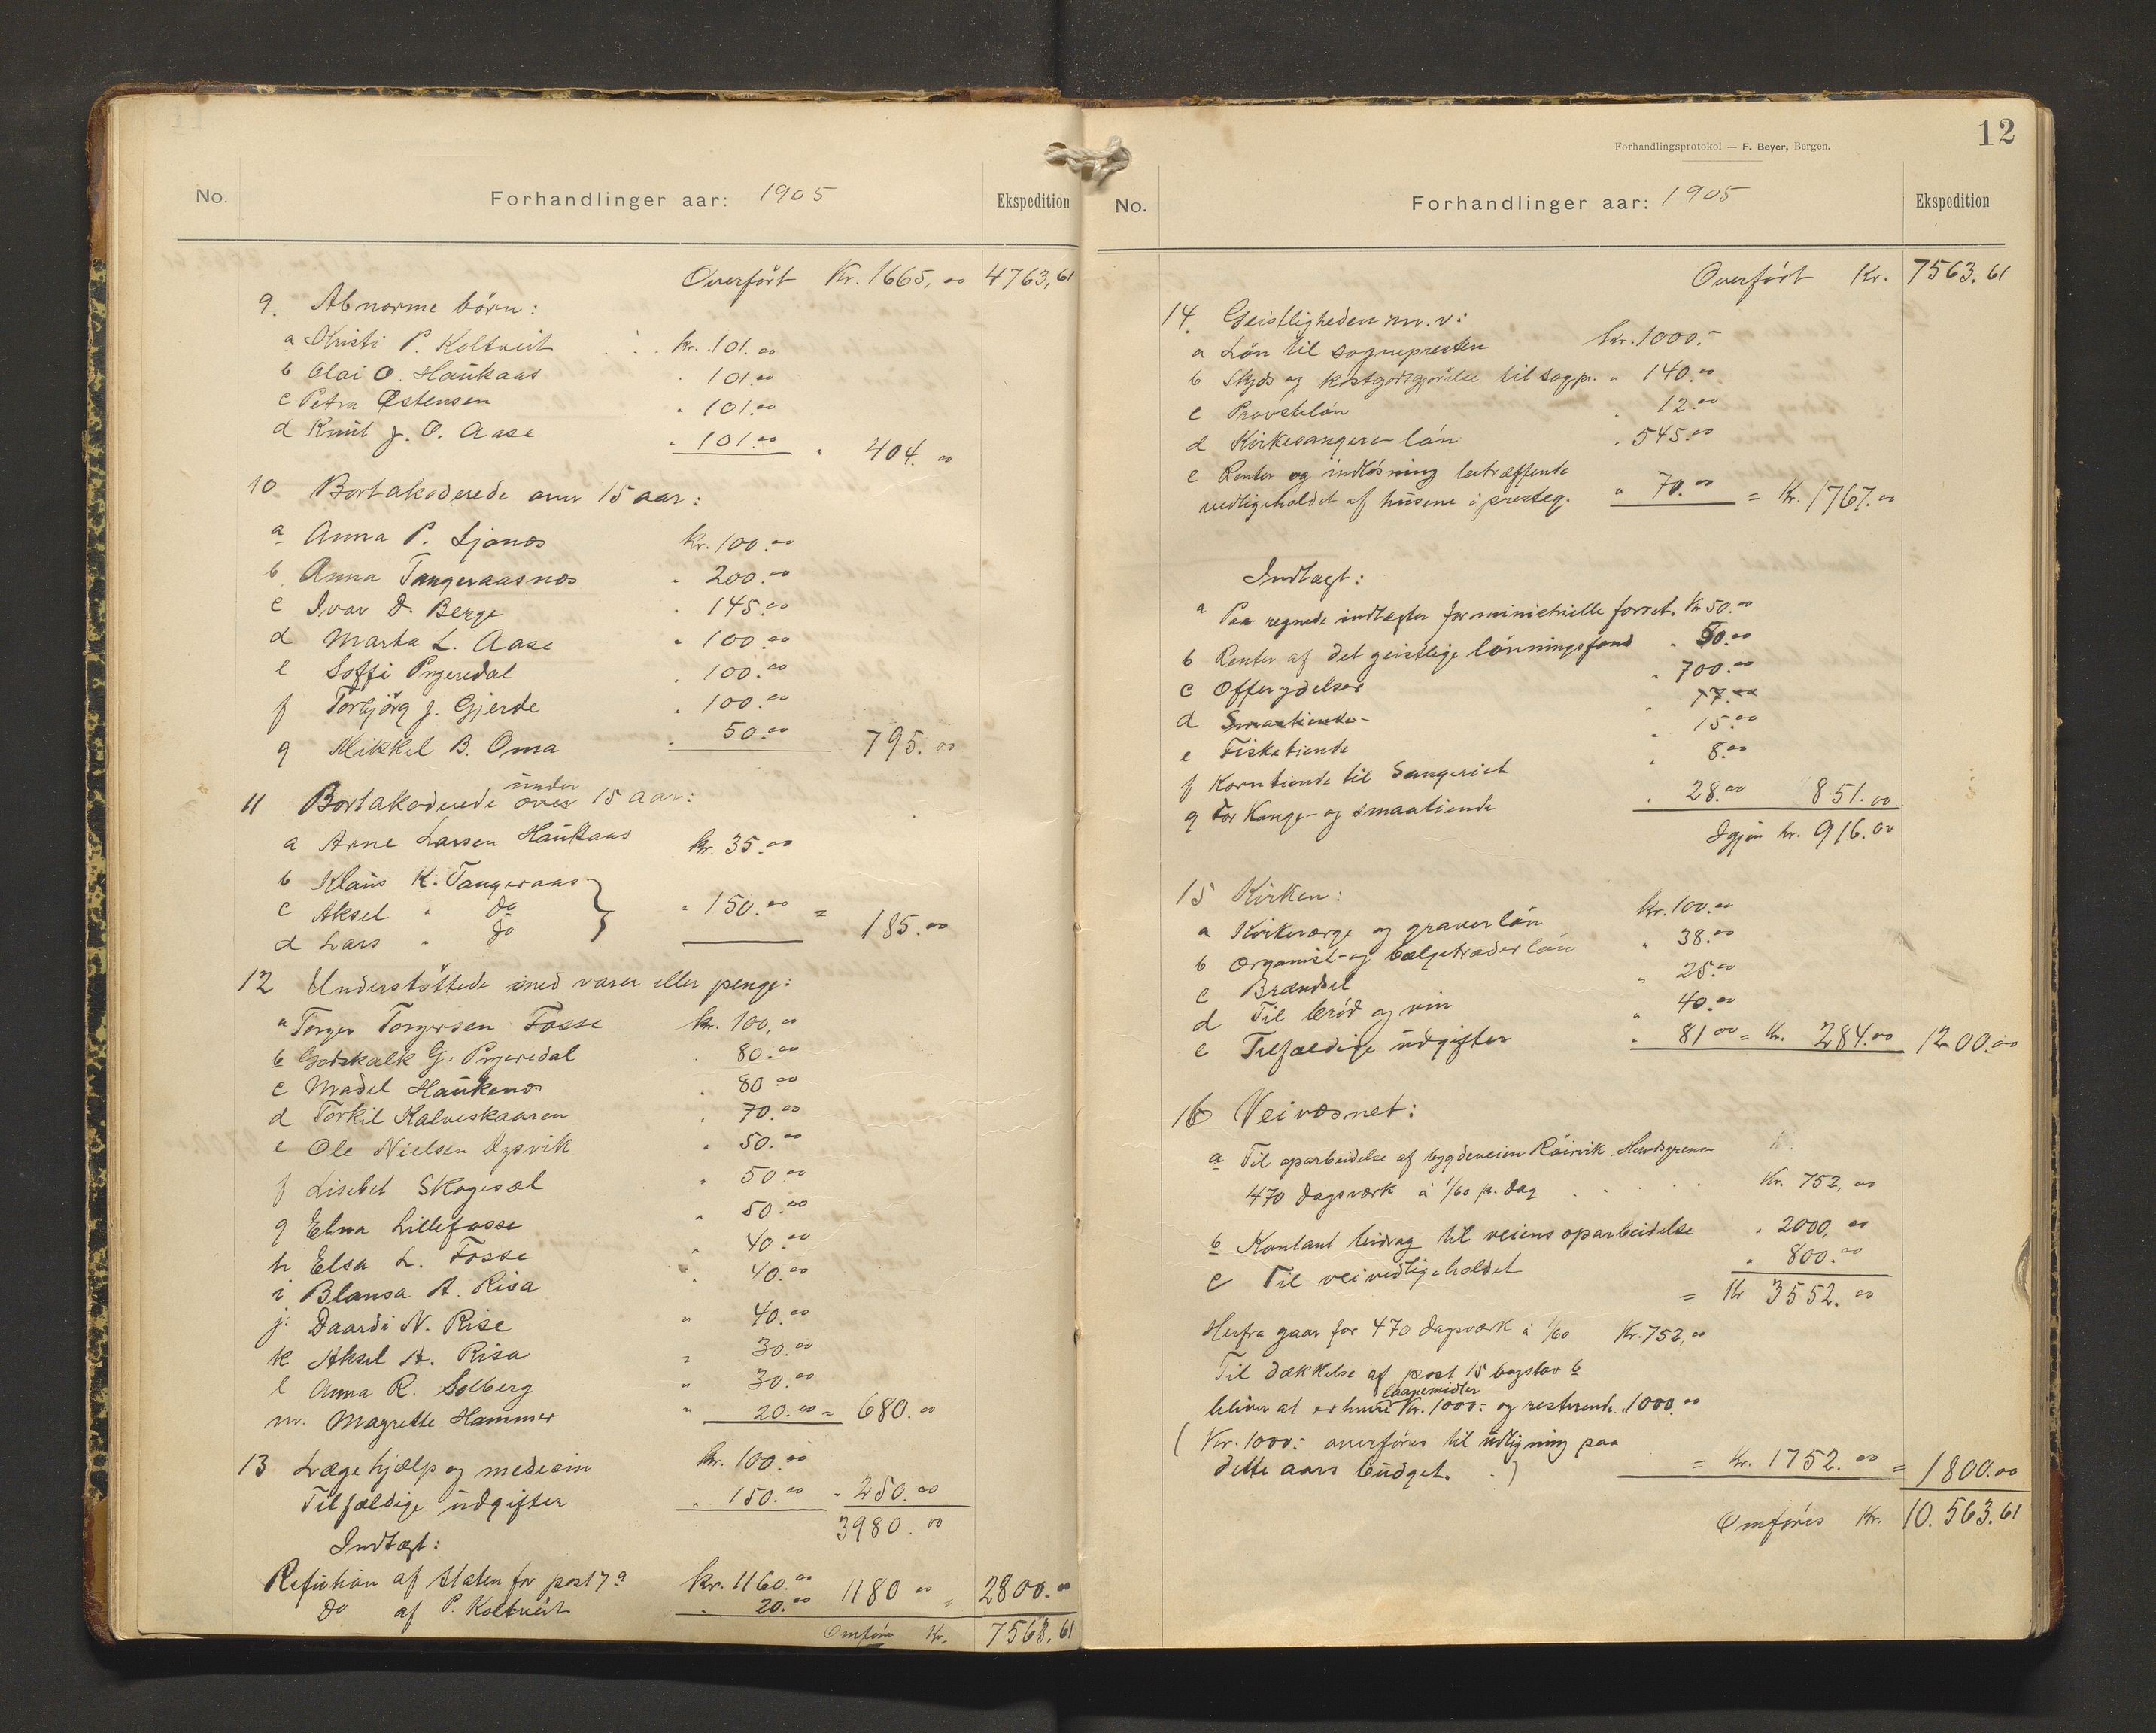 No. Forhandlinger aar: 1905 Ekspedition
Overført Kr. 1665,00 4763,61
9. Abnorme børn:
a Kristi P. Koltveit kr. 101.00
b Olai O. Haukaas " 101.00
c Petra Østensen " 101.00
d Knut J. O. Aase " 101.00 " 404.00
10 Bortakoderede over 15 aar:
a Anna P. Ljones kr. 100.00
b Anna Tangeraasnes " 200.00
c Ivar D. Berge " 145.00
d Marta L. Aase " 100.00
e Soffi Pryeredal " 100.00
f Torbjørg J. Gjerde " 100.00
g Mikkel B. Oma " 50.00 795.00
under
11 Bortakoderede over 15 aar:
a Arne Larsen Haukaas kr. 35.00
b Klaus K. Tangeraas
c Aksel " do " 150.00 = 185.00
d Lars " do
12 Understøttede med varer eller penge:
a Torger Torgersen Fosse kr. 100,00
b Godskalk G. Pryeredal " 80.00
c Madel Haukenes " 80.00
d Torkil Kalveskaaren " 70.00
e Ole Nielsen Dysvik " 50.00
f Lisebet Skogesæl " 50.00
g Elna Lillefosse " 50.00
h Elsa L. Fosse " 40.00
i Blansa A. Risa " 40.00
j. Daardi N. Rise " 40.00
k Aksel A. Risa " 30.00
l Anna R. Solberg " 30.00
m. Magrette Hammer " 20.00 = 680.00
13 Lægehjælp og medicin kr. 100.00
Tilfældige udgifter " 150.00 " 250.00
3980.00
Indtægt:
Refution af Staten for post 7 a kr. 1160.00
Do af P. Koltveit " 20.00 1180 00 = 2800.00
Omføres Kr. 7563.61
Forhandlingsprotokol — F. Beyer, Bergen.
12
No. Forhandlinger aar: 1905 Ekspedition
Overført Kr. 7563.61
14. Geistligheden m.v:
a Løn til sognepresten kr. 1000.-
b Skyds og kostgodtgjørelse til sogpr. " 140.00
c Provsteløn " 12.00
d Kirkesanger-løn " 545.00
e Renter og indløsning betræffende
vedligeholdet af husene i presteg. " 70.00 = Kr. 1767.00
Indtægt:
a Paa regnede indtægter for ministrielle forret. Kr 50.00
b Renter af det geistlige lønningsfond " 50.00
c Offerydelser " 700.00
d Smaatiende- " 17.00
e Fisketiende " 15.00
f Korntiende til Sangeriet " 8.00
g For Konge- og smaatiende " 28.00 851.00
Igjen kr. 916.00
15 Kirken:
a Kirkeværge og graverløn Kr. 100.00
b Organist- og bælgetræderløn " 38.00
c Brændsel " 25.00
d Til brød og vin " 40.00
e Tilfældige udgifter " 81 00 = Kr. 284.00 1200.00
16 Veivæsnet:
a Til oparbeidelse af bygdeveien Røirvik-Herredsgrense
470 dagsværk à 1/60 p. dag Kr. 752,00
b Kontant bidrag til veiens oparbeidelse " 2000,00
c Til veivedligeholdet " 800.00
= Kr 3552.00
Herfra gaar for 470 dagsværk à 1/60 Kr. 752,00
Til dækkelse af post 15 bogstav b
laanemidler
bliver at erhverve Kr. 1000:- og resterende " 1000.00
(Kr. 1000:- overføres til udligning paa
dette aars budget.) = Kr. 1752.00 = 1800.00
Omføres Kr. 10.563.61